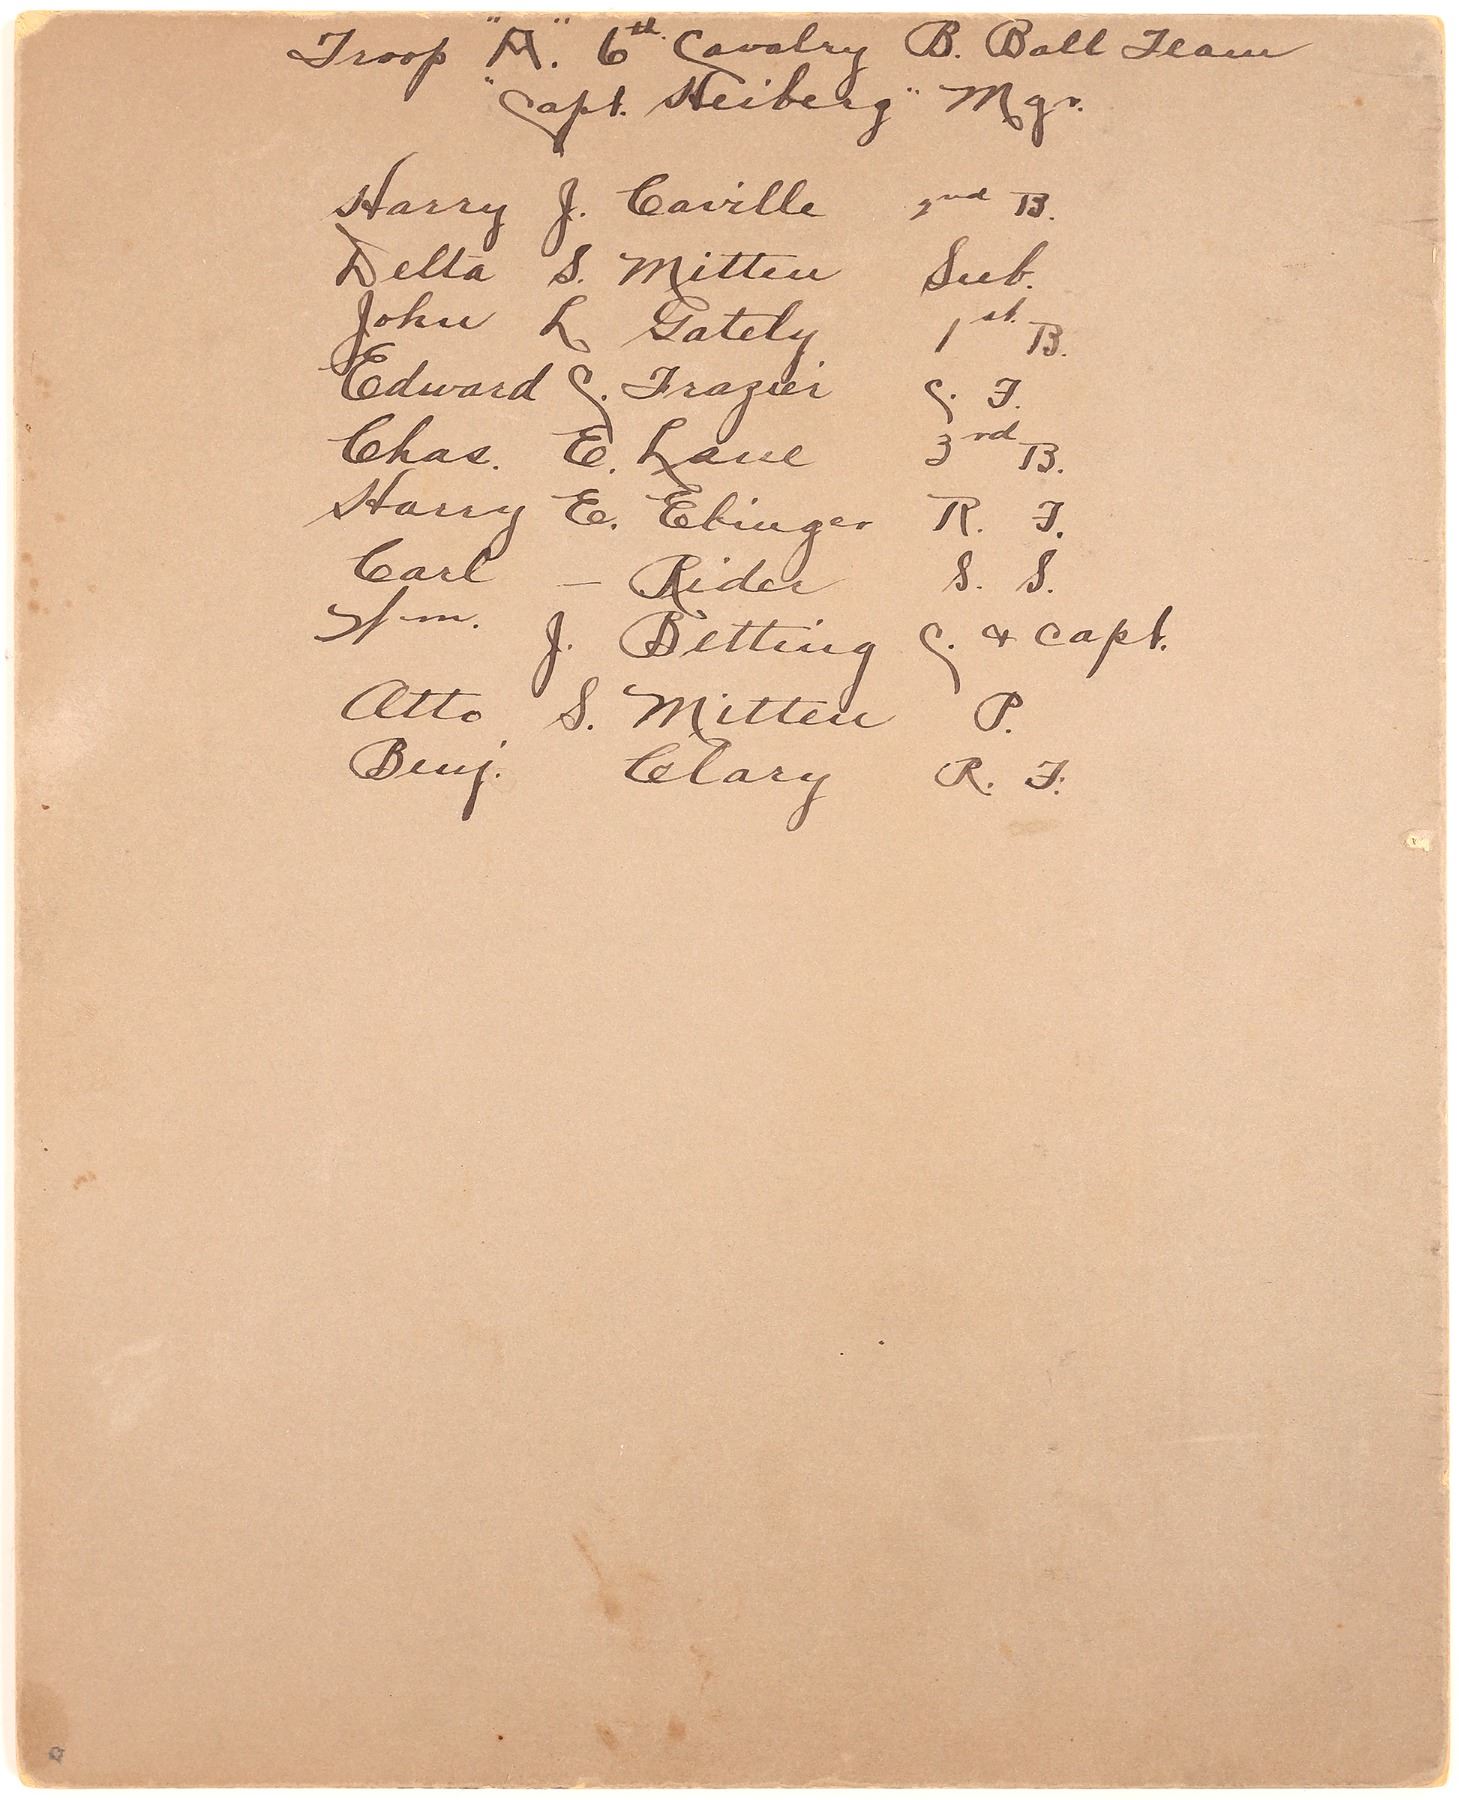 Troop "A". 6th Cavalry B. Ball Team
"Capt. Heiberg" Mgr.
Harry J. Caville 2nd B.
Delta S. Mitten Sub.
John L Gately 1st. B.
Edward C. Frazier C. F.
Chas. E. Lane 3rd B.
Harry E. Ebinger R. F.
Carl — Rider S. S.
Wm. J. Betting C. & Capt.
Otto S. Mitten P.
Benj. Clary R. F.